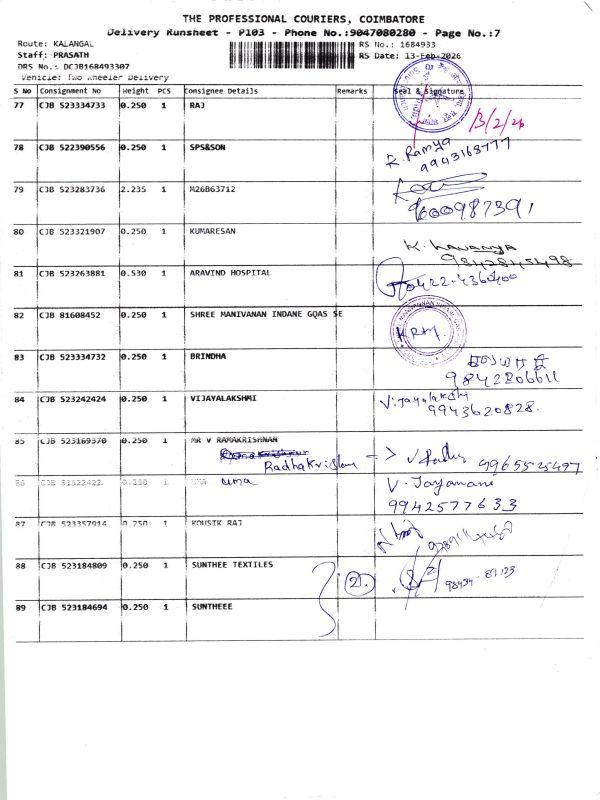 THE PROFESSIONAL COURIERS, COIMBATORE
Delivery Runsheet - P103 - Phone No.:9047080280 - Page No.:7
Route: KALANGAL RS No.: 1684933
Staff: PRASATH RS Date: 13-Feb-2026
DRS No.: DCJB168493307
Vehicle: Two Wheeler Delivery
S No Consignment No Weight PCS Consignee Details Remarks Seal & Signature
77 CJB 523334733 0.250 1 RAJ
13/2/26
78 CJB 522390556 0.250 1 SPS&SON R. Ramya
9943168777
79 CJB 523283736 2.235 1 M26B63712
9600987391
80 CJB 523321907 0.250 1 KUMARESAN
K. Lavanya
9842845498
81 CJB 523263881 0.530 1 ARAVIND HOSPITAL 0422-4360400
82 CJB 81608452 0.250 1 SHREE MANIVANAN INDANE GQAS SE
83 CJB 523334732 0.250 1 BRINDHA
9842206611
84 CJB 523242424 0.250 1 VIJAYALAKSHMI Vijayalakshi
9943620828.
85 CJB 523169370 0.250 1 MR V RAMAKRISHNAN
Radhakrishnan -> 9965525497
86 CJB 81522422 0.150 1 UMA uma V. Jayamani
9942577633
87 CJB 523357914 0.250 1 KOUSIK RAJ
88 CJB 523184809 0.250 1 SUNTHEE TEXTILES
2. 98434-89123
89 CJB 523184694 0.250 1 SUNTHEEE